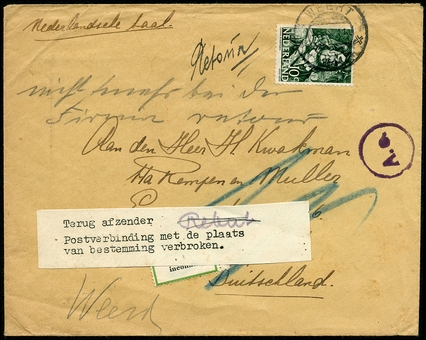 Nederlandsche taal.
WEERT
NEDERLAND
10c
Retour
niet mehr bei der
Firma retour
Van den Heer H. Kwakman
Fa Kempen en Muller
Terug afzender
Rebut
Postverbinding met de plaats
van bestemming verbroken.
Duitschland.
Weerd